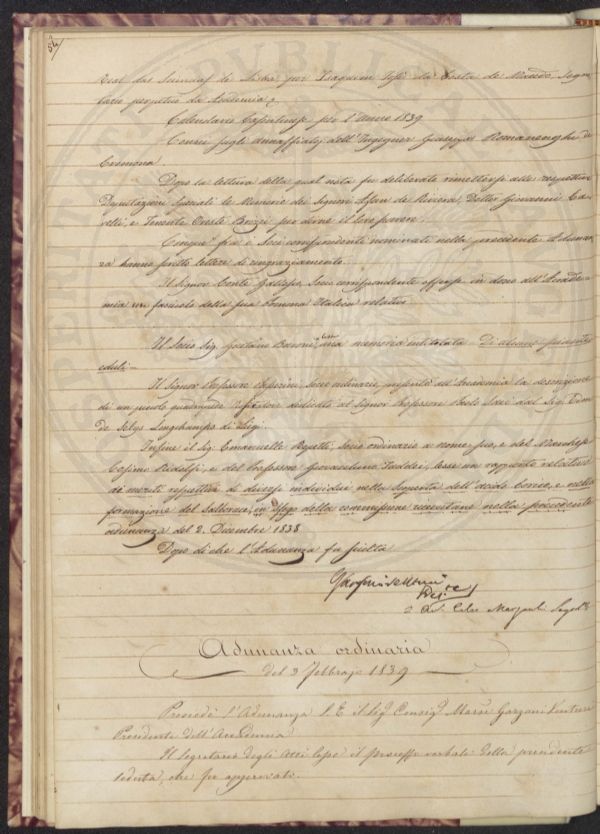 52
Real das Sciencias de Lisboa per Joaquim José da Costa de Macedo, Segre-
tario perpetuo da Academia.
Calendario Casentinese per l'Anno 1839
Cenni sugli annaffiatoj dell'Ingegner Giuseppe Romanenghi di
Cremona.
Dopo la lettura della qual nota fu deliberato rimettersi alle respettive
Deputazioni speciali le Memorie dei Signori Afan de Rivera, Dottor Giovanni Ca-
retti, e Tenente Oreste Brizzi per dirne il loro parere.
Cinque fra i Soci corrispondenti nominati nella precedente Adunan-
za hanno scritto lettere di ringraziamento.
Il Signor Conte Gallesio, Socio corrispondente offerse in dono all'Accade-
mia un fascicolo della sua Pomona Italica relativo
Il Socio Sig. Gaetano Baroni, lesse una memoria intitolata = Di alcune
eduli =
Il Signor Professore ordinario, presentò all'Accademia la descrizione
di un quadrumane dedicato al Signor Professore Paolo Savi dal Sig.
de Selys Longchamps di Liegi.
Infine il Sig. Emanuelle Repetti, Socio ordinario a nome suo, e del Marchese
Cosimo Ridolfi, e del Professore Gioacchino Taddei, lesse un rapporto relativo
ai meriti respettivi di diversi individui nella scoperta dell'acido Borico, e nella
formazione del in sfogo della commissione ricevutane nella precedente
adunanza del 2. Dicembre 1838
Dopo di che l'Adunanza fu sciolta
Pres.te
Seg.
Adunanza ordinaria
del 3 febbrajo 1839
Presiedè l'Adunanza S. E. il Sig. Consig. March. Garzoni Venturi
Presidente dell'Accademia
Il segretario degli Atti lesse il processo verbale della precedente
seduta, che fu approvato.